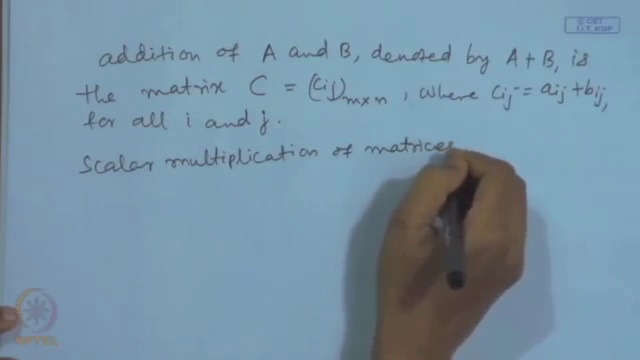 © CET
I.I.T. KGP
addition of A and B, denoted by A + B, is
the matrix C = (Cij)m×n, where Cij = aij + bij,
for all i and j.
Scalar multiplication of matrices
NPTEL